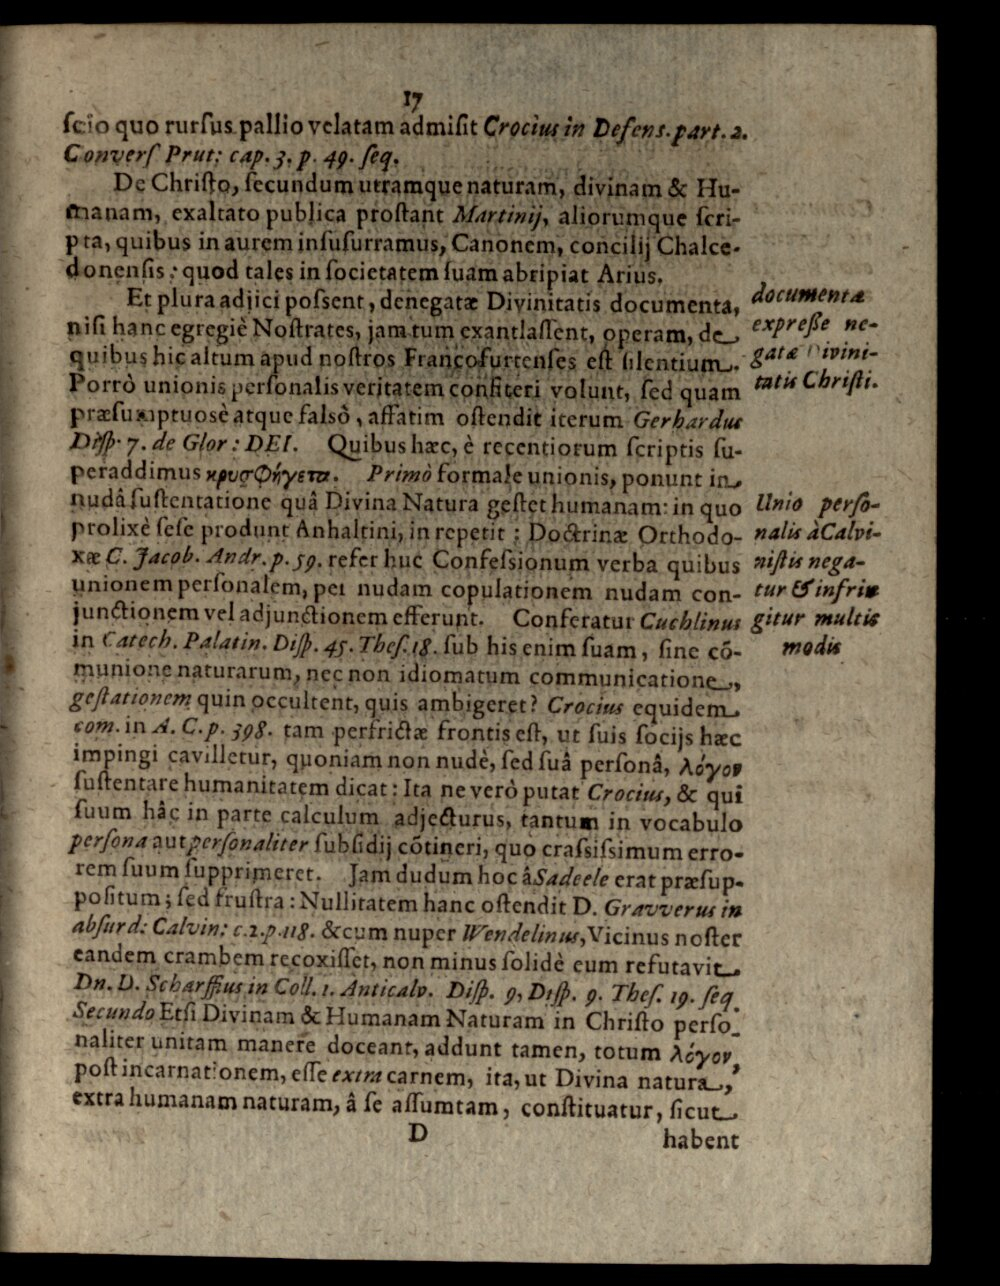 17
ſcio quo rurſus pallio velatam admiſit Crocius in Defens. part. 2.
Converſ Prut: cap. 3. p. 49. ſeq.
De Chriſto, ſecundum utramque naturam, divinam & Hu-
manam, exaltato publica proſtant Martinij, aliorumque ſcri-
pta, quibus in aurem inſuſurramus, Canonem, concilij Chalce-
donenſis: quod tales in ſocietatem ſuam abripiat Arius.
Et plura adjici poſſent, denegatæ Divinitatis documenta,
niſi hanc egregiè Noſtrates, jam tum exantlaſſent, operam, de
quibus hic altum apud noſtros Francofurtenſes eſt ſilentium.
Porrò unionis perſonalis veritatem confiteri volunt, ſed quam
præſumptuosè atque falsò, affatim oſtendit iterum Gerhardus
Diſp. 7. de Glor: DEI. Quibus hæc, è recentiorum ſcriptis ſu-
peraddimus κρυσφήγετα. Primò formale unionis, ponunt in
nudâ ſuſtentatione quâ Divina Natura geſtet humanam: in quo
prolixè ſeſe produnt Anhaltini, in repetit: Doctrinæ Orthodo-
xæ C. Jacob. Andr. p. 59. refer huc Confeſsionum verba quibus
unionem perſonalem, per nudam copulationem nudam con-
junctionem vel adjunctionem efferunt. Conferatur Cuchlinus
in Catech. Palatin. Diſp. 45. Theſ. 18. ſub his enim ſuam, ſine cõ-
munione naturarum, nec non idiomatum communicatione,
geſtationem quin occultent, quis ambigeret? Crocius equidem
com. in A. C. p. 398. tam perfrictæ frontis eſt, ut ſuis ſocijs hæc
impingi cavilletur, quoniam non nudè, ſed ſuâ perſonâ, λόγον
ſuſtentare humanitatem dicat: Ita ne verò putat Crocius, & qui
ſuum hâc in parte calculum adjecturus, tantum in vocabulo
perſona aut perſonaliter ſubſidij cõtineri, quo craſsiſsimum erro-
rem ſuum ſupprimeret. Jam dudum hoc â Sadeele erat præſup-
poſitum; ſed fruſtra: Nullitatem hanc oſtendit D. Gravverus in
abſurd: Calvin: c. 2. p. 118. & cum nuper Wendelinus, Vicinus noſter
eandem crambem recoxiſſet, non minus ſolidè eum refutavit
Dn. D. Scharffius in Coll. 1. Anticalv. Diſp. 9, Diſp. 9. Theſ. 19. ſeq
Secundo Etſi Divinam & Humanam Naturam in Chriſto perſo-
naliter unitam manere doceant, addunt tamen, totum λόγον,
poſt incarnationem, eſſe extra carnem, ita, ut Divina natura,
extra humanam naturam, â ſe aſſumtam, conſtituatur, ſicut
D
habent
documenta
expreße ne-
gatæ Divini-
tatis Chriſti.
Unio perſo-
nalis à Calvi-
niſtis nega-
tur & infrin
gitur multis
modis